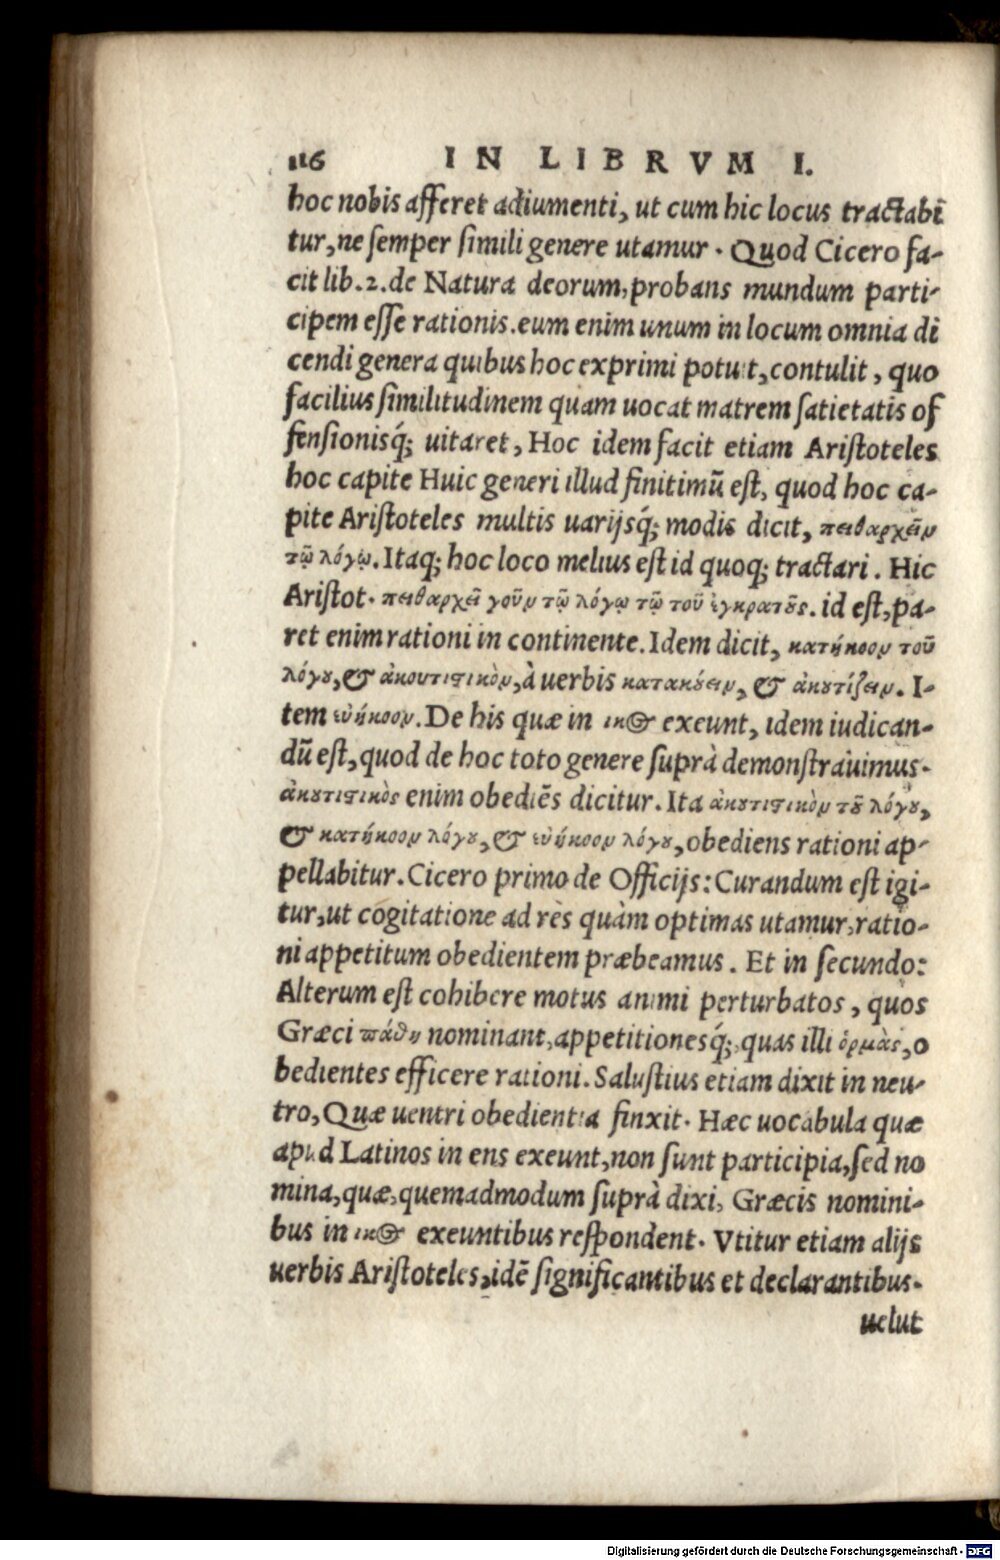 116 IN LIBRVM I.
hoc nobis afferet adiumenti, ut cum hic locus tractabĩ
tur, ne semper simili genere utamur. Quod Cicero fa-
cit lib.2.de Natura deorum, probans mundum parti-
cipem esse rationis. eum enim unum in locum omnia di
cendi genera quibus hoc exprimi potuit, contulit, quo
facilius similitudinem quam uocat matrem satietatis of
fensionisq́; uitaret, Hoc idem facit etiam Aristoteles
hoc capite Huic generi illud finitimũ est, quod hoc ca-
pite Aristoteles multis uarijsq́; modis dicit, πειθαρχεῖν
τῷ λόγῳ. Itaq; hoc loco melius est id quoq; tractari. Hic
Aristot. πειθαρχεῖ γοῦν τῷ λόγῳ τῷ τοῦ ἐγκρατοῦς. id est, pa-
ret enim rationi in continente. Idem dicit, κατήκοον τοῦ
λόγου, & ἀκουτιστικὸν, à uerbis κατακούειν, & ἀκουτίζειν. I-
tem εὐήκοον. De his quæ in ικος exeunt, idem iudican-
dũ est, quod de hoc toto genere suprà demonstrauimus.
ἀκουτιστικὸς enim obediẽs dicitur. Ita ἀκουτιστικὸν τοῦ λόγου,
& κατήκοον λόγου, & εὐήκοον λόγου, obediens rationi ap-
pellabitur. Cicero primo de Officijs: Curandum est igi-
tur, ut cogitatione ad res quàm optimas utamur, ratio-
ni appetitum obedientem præbeamus. Et in secundo:
Alterum est cohibere motus animi perturbatos, quos
Græci πάθη nominant, appetitionesq́;, quas illi ὁρμὰς, o
bedientes efficere rationi. Salustius etiam dixit in neu-
tro, Quæ uentri obedientia finxit. Hæc uocabula quæ
apud Latinos in ens exeunt, non sunt participia, sed no
mina, quæ, quemadmodum suprà dixi, Græcis nomini-
bus in ικος exeuntibus respondent. Vtitur etiam alijs
uerbis Aristoteles, idẽ significantibus et declarantibus.
uelut
Digitalisierung gefördert durch die Deutsche Forschungsgemeinschaft - DFG